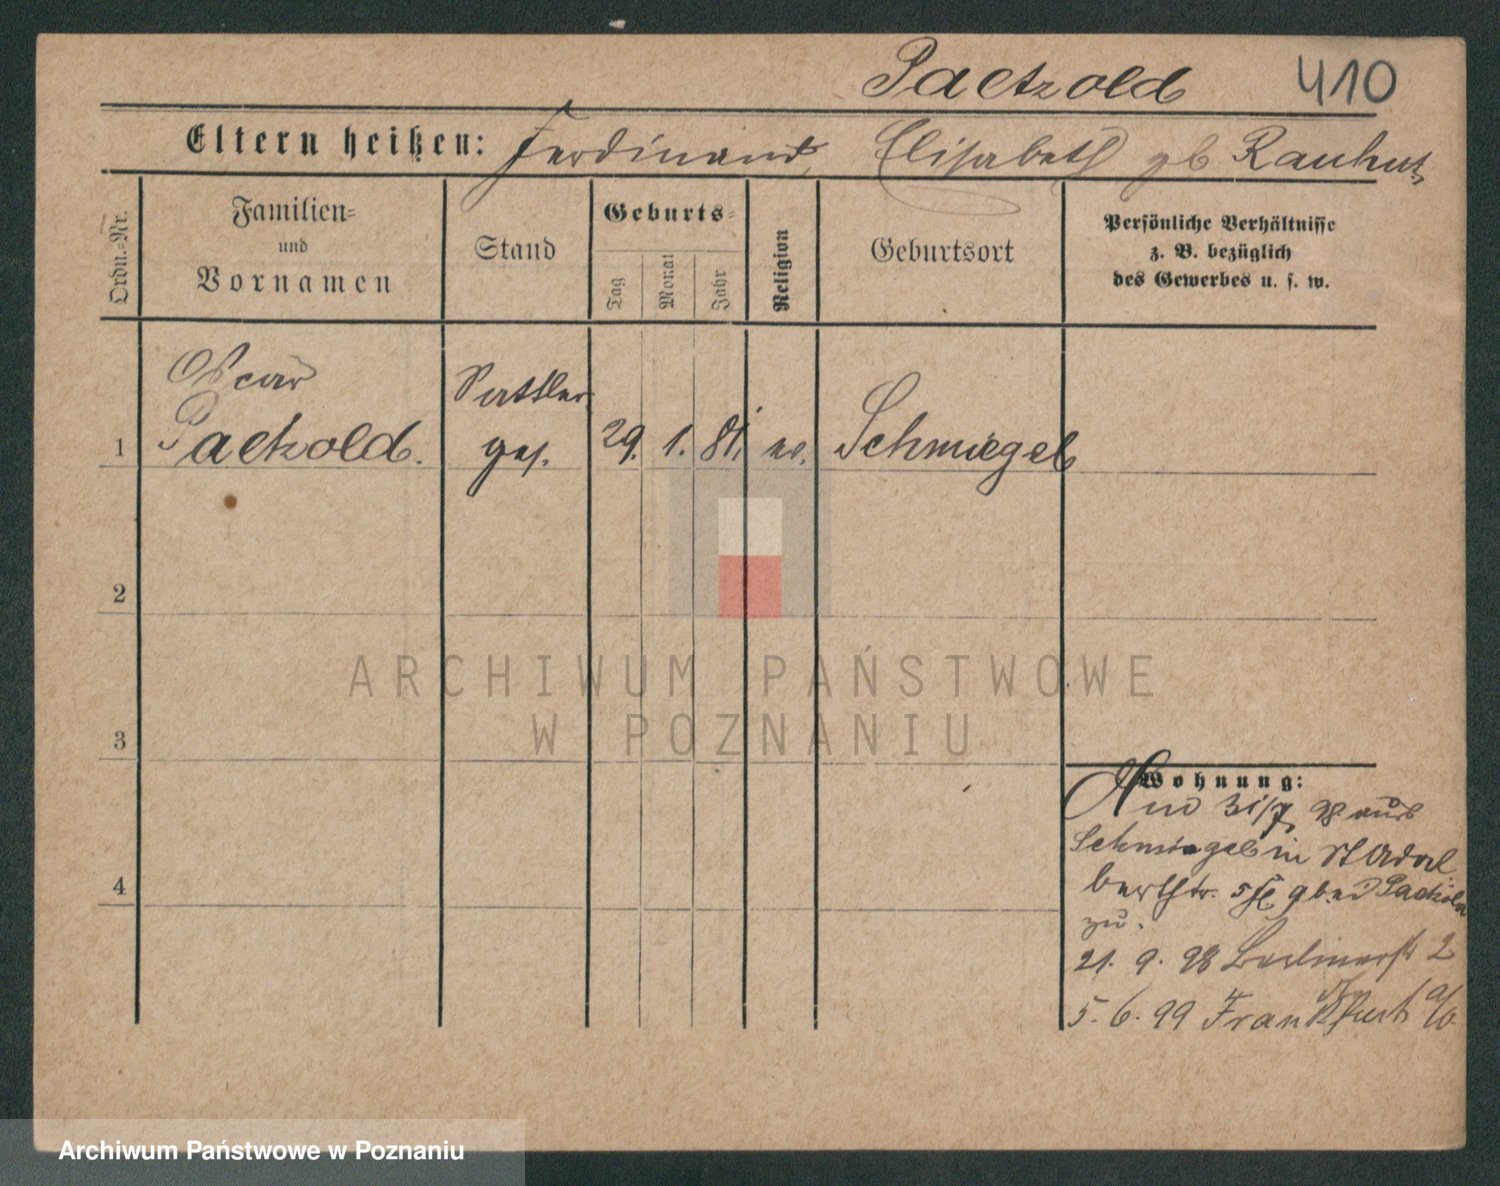 Paetzold 410
Eltern heißen: Ferdinand, Elisabeth gb Rauhut
Ordn.-Nr.
Familien-
und
Vornamen
Stand
Geburts-
Tag
Monat
Jahr
Religion
Geburtsort
Persönliche Verhältnisse
z. B. bezüglich
des Gewerbes u. s. w.
Oscar
1 Paetzold.
Sattler
ges. 29. 1. 81. ev. Schmiegel
2
3
4
ARCHIWUM PAŃSTWOWE
W POZNANIU
Wohnung:
31/7 98 aus
Schmiegel in St Adal
bertstr. 5 bei Paetzold
zu.
21. 9. 98 Berlinerst 2
5. 6. 99 Frankfurt a/O.
Archiwum Państwowe w Poznaniu